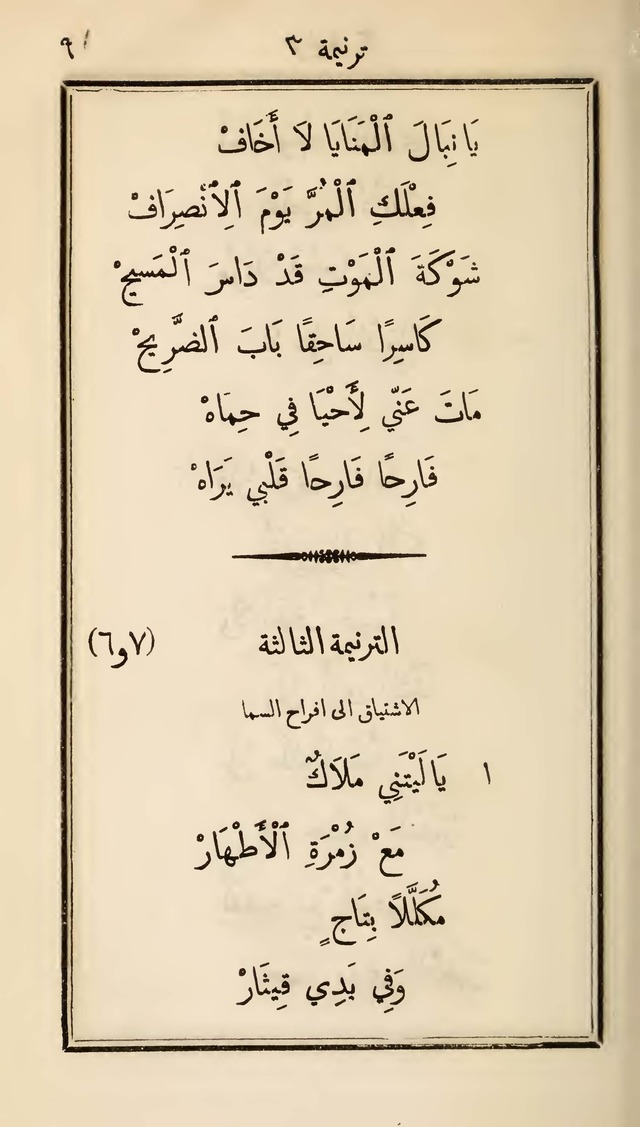 ترنيمة ٣ ٩
يَا نِبَالَ ٱلْمَنَايَا لَا أَخَافْ
فِعْلَكِ ٱلْمُرَّ يَوْمَ ٱلِٱنْصِرَافْ
شَوْكَةَ ٱلْمَوْتِ قَدْ دَاسَ ٱلْمَسِيحْ
كَاسِرًا سَاحِقًا بَابَ ٱلضَّرِيحْ
مَاتَ عَنِّي لِأَحْيَا فِي حِمَاهْ
فَارِحًا فَارِحًا قَلْبِي يَرَاهْ
الترنيمة الثالثة (٧و٦)
الاشتياق الى افراح السما
١ يَا لَيْتَنِي مَلَاكٌ
مَعْ زُمْرَةِ ٱلْأَطْهَارْ
مُكَلَّلًا بِتَاجٍ
وَفِي بَدِي قِيثَارْ